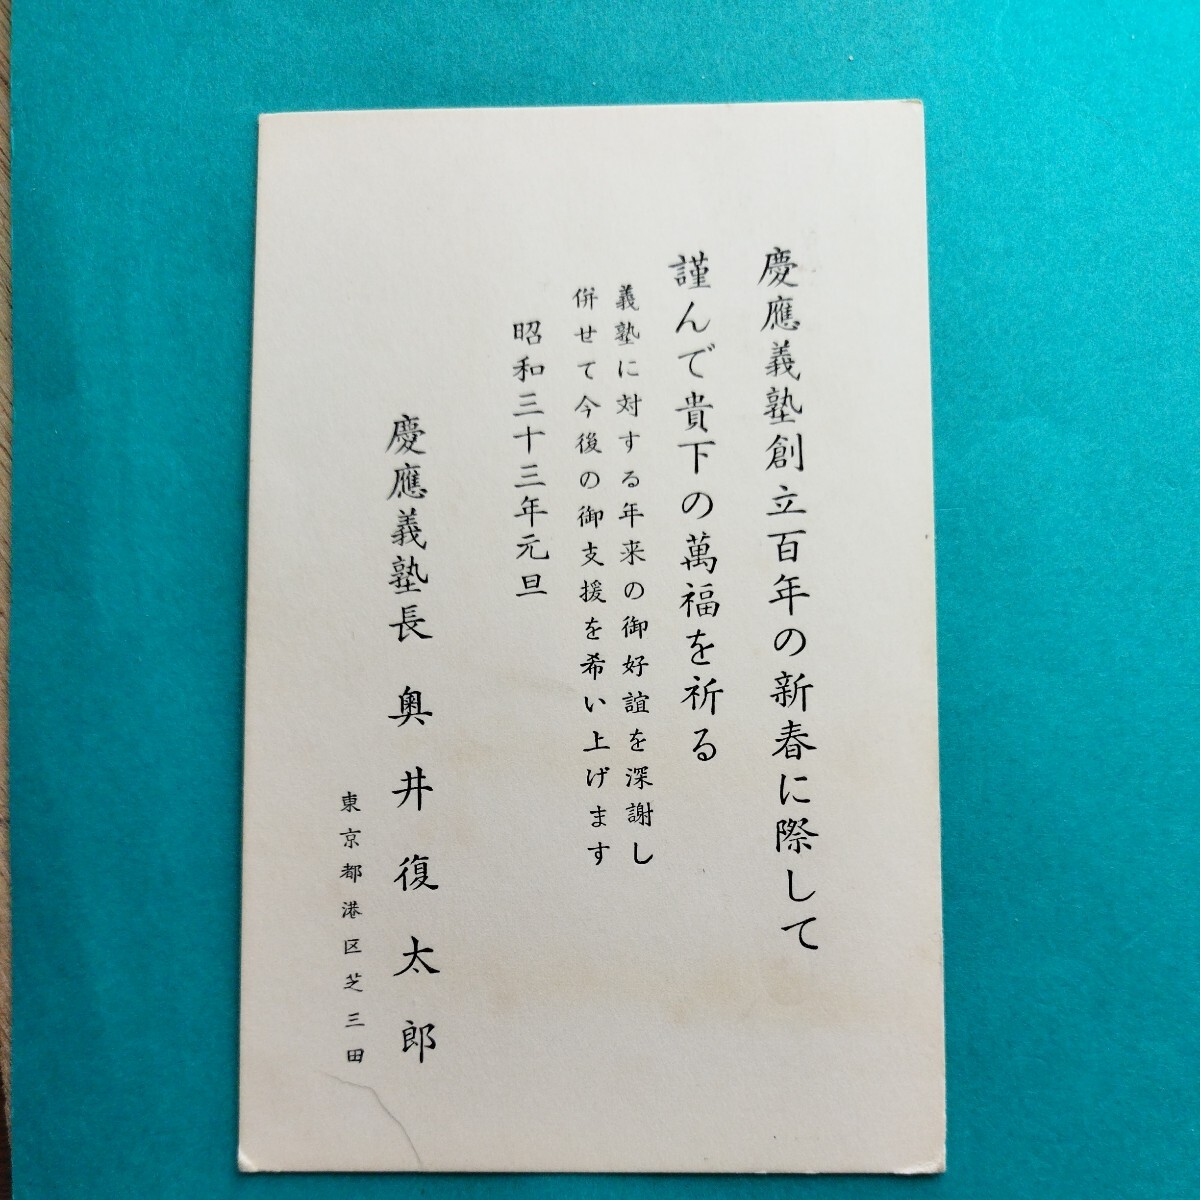 慶應義塾創立百年の新春に際して
謹んで貴下の萬福を祈る
義塾に対する年来の御好誼を深謝し
併せて今後の御支援を希い上げます
昭和三十三年元旦
慶應義塾長 奥井復太郎
東京都港区芝三田